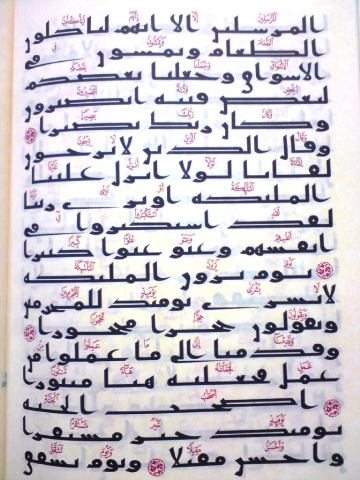 المرسلين الا انهم لياكلون
الطعام ويمشون في
الاسواق وجعلنا بعضكم
لبعض فتنة اتصبرون
وكان ربك بصيرا
وقال الذين لا يرجون
لقانا لولا انزل علينا
الملئكة او نرى ربنا
لقد استكبروا في
انفسهم وعتو عتوا كبيرا
يوم يرون الملئكة
لا بشرى يومئذ للمجرمين
ويقولون حجرا محجورا
وقدمنا الى ما عملوا من
عمل فجعلنه هبا منثورا
اصحب الجنة
يومئذ خير مستقرا
واحسن مقيلا ويوم تشقق